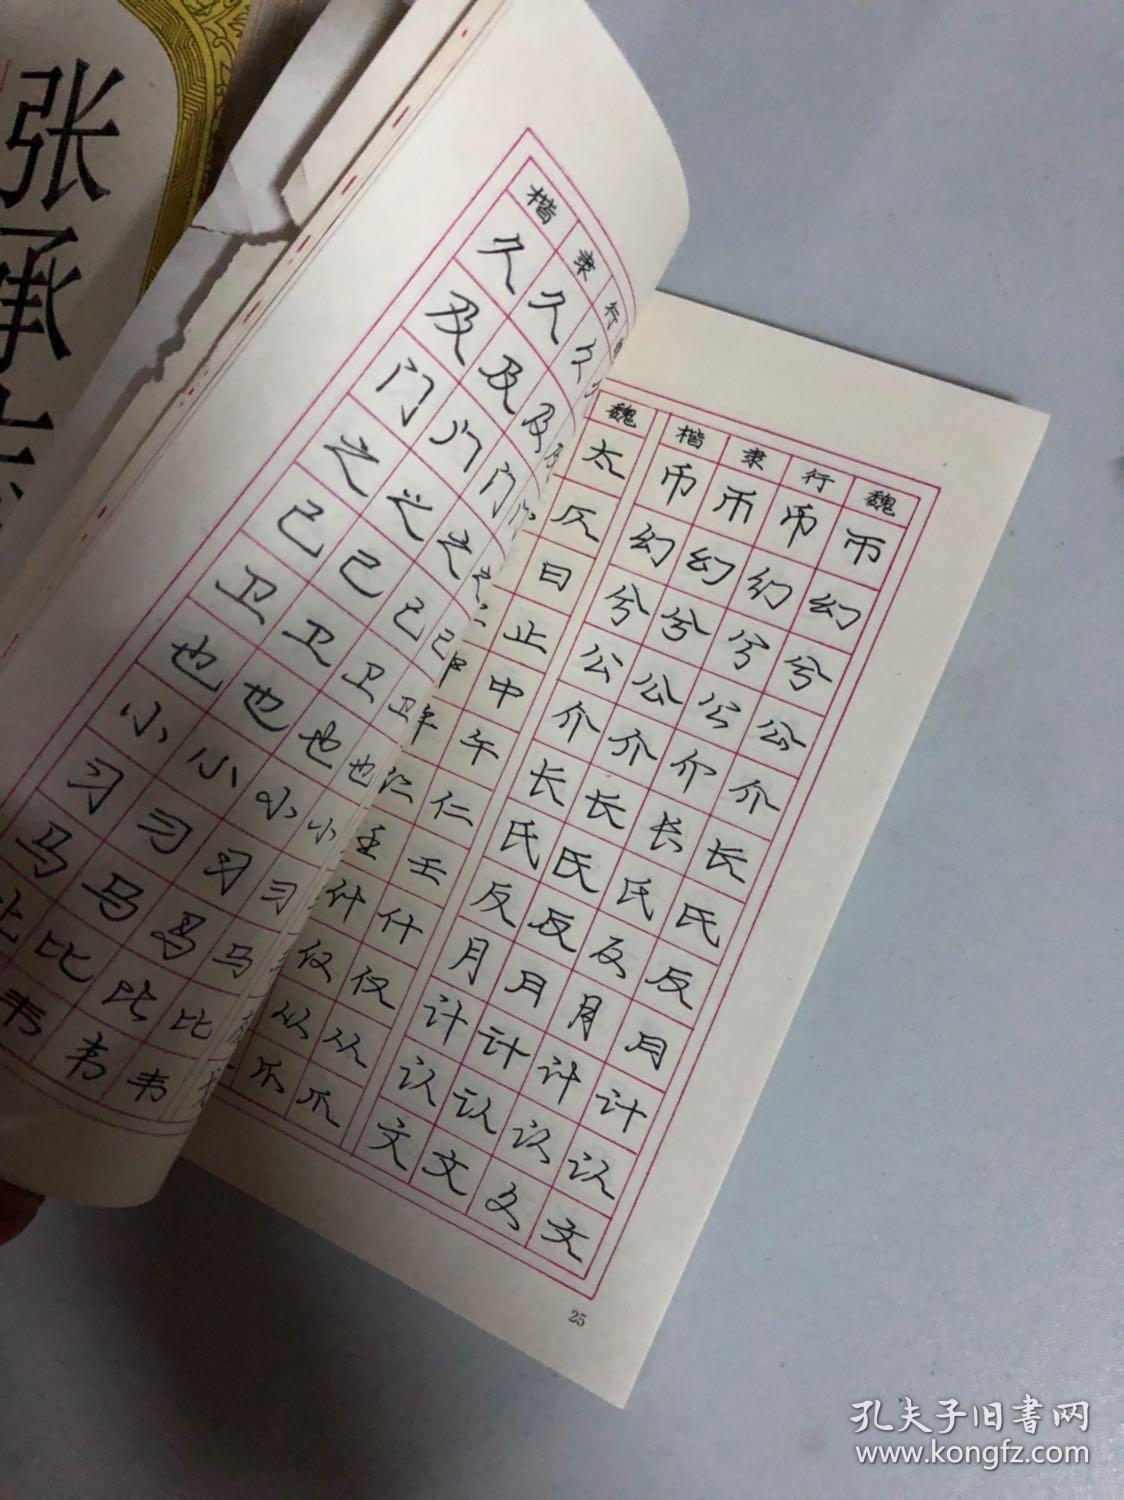 张承
楷 隶 行
久 久 久
及 及 及 及
门 门 门 门
之 之 之 之
己 己 己 己
卫 卫 卫 卫
也 也 也 也
小 小 小 小
习 习 习 习
马 马 马 马
比 比 比 比
韦 韦 韦
魏
太
仄
曰
止
中 中
午 午
仁 仁
壬 壬
什 什
仅 仅
从 从
爪 爪
楷 隶 行 魏
币 币 币 币
幻 幻 幻 幻
兮 兮 兮 兮
公 公 公 公
介 介 介 介
长 长 长 长
氏 氏 氏 氏
反 反 反 反
月 月 月 月
计 计 计 计
认 认 认 认
文 文 文 文
25
孔夫子旧书网
www.kongfz.com